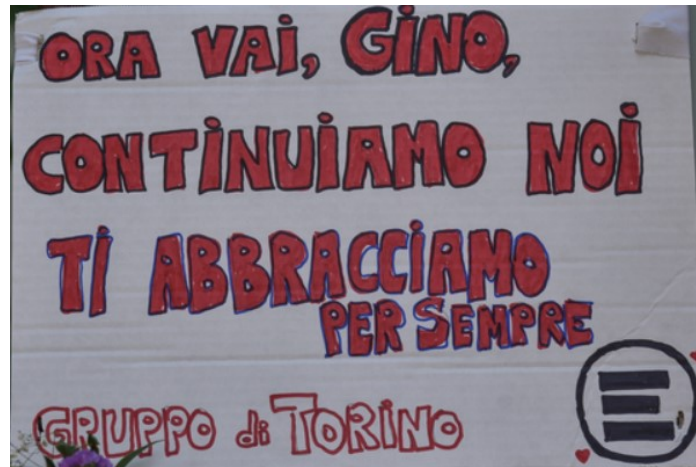 ORA VAI, GINO,
CONTINUIAMO NOI
TI ABBRACCIAMO
PER SEMPRE
GRUPPO di TORINO
E